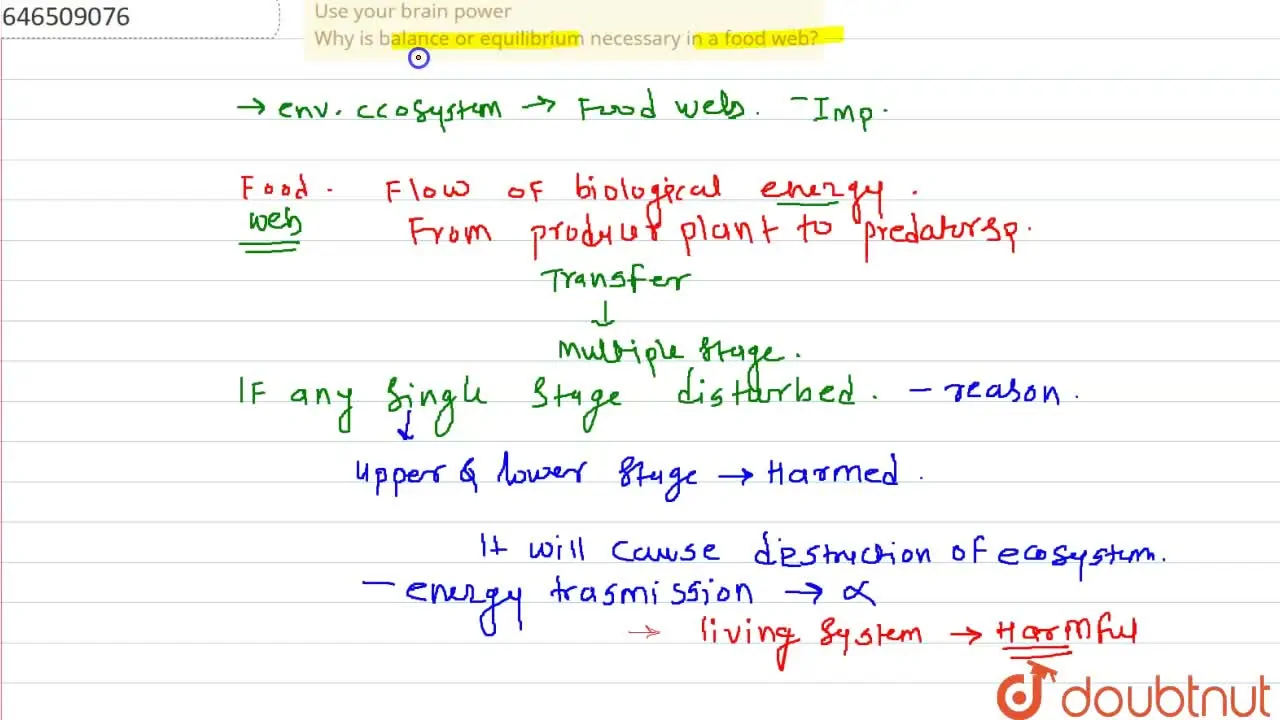 646509076
Use your brain power
Why is balance or equilibrium necessary in a food web?
→ env. ccosystem → Food webs. - Imp.
Food. Flow of biological energy.
web From producer plant to predatorsp.
Transfer
↓
Multiple stage.
IF any single stage disturbed. - reason.
↓
upper & lower stage → Harmed.
It will cause destruction of ecosystem.
- energy trasmission → α
→ living system → Harmful
doubtnut